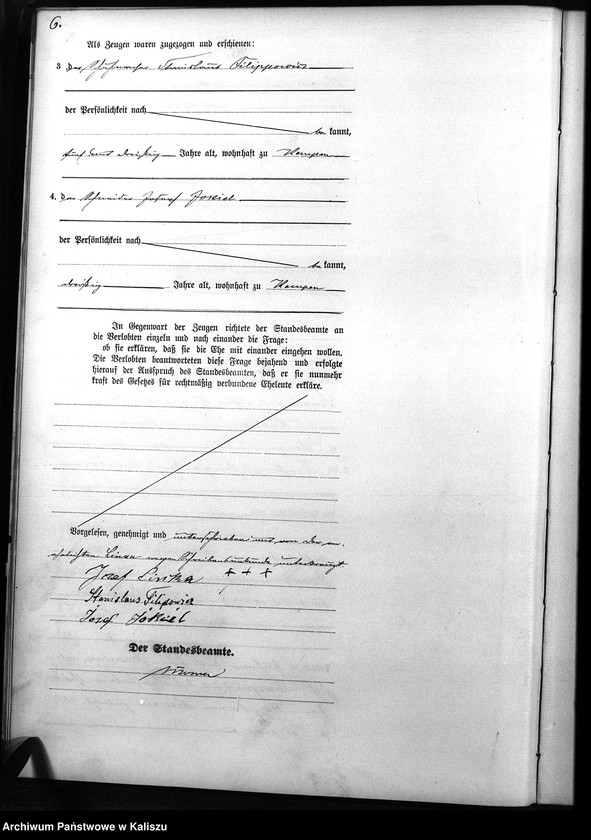 6.
Als Zeugen waren zugezogen und erschienen:
3. Der Schuhmacher Stanislaus Filippowicz
der Persönlichkeit nach
be kannt,
fünf und dreißig Jahre alt, wohnhaft zu Kempen
4. Der Schneider Josef Jokiel
der Persönlichkeit nach
be kannt,
dreißig Jahre alt, wohnhaft zu Kempen
In Gegenwart der Zeugen richtete der Standesbeamte an
die Verlobten einzeln und nach einander die Frage:
ob sie erklären, daß sie die Ehe mit einander eingehen wollen.
Die Verlobten beantworteten diese Frage bejahend und erfolgte
hierauf der Ausspruch des Standesbeamten, daß er sie nunmehr
kraft des Gesetzes für rechtmäßig verbundene Eheleute erkläre.
Vorgelesen, genehmigt und unterschrieben und von der ver-
ehelichten wegen Schreibensunkunde unterkreuzt
Josef + + +
Stanislaus Filipowicz
Josef Jokiel
Der Standesbeamte.
Archiwum Państwowe w Kaliszu